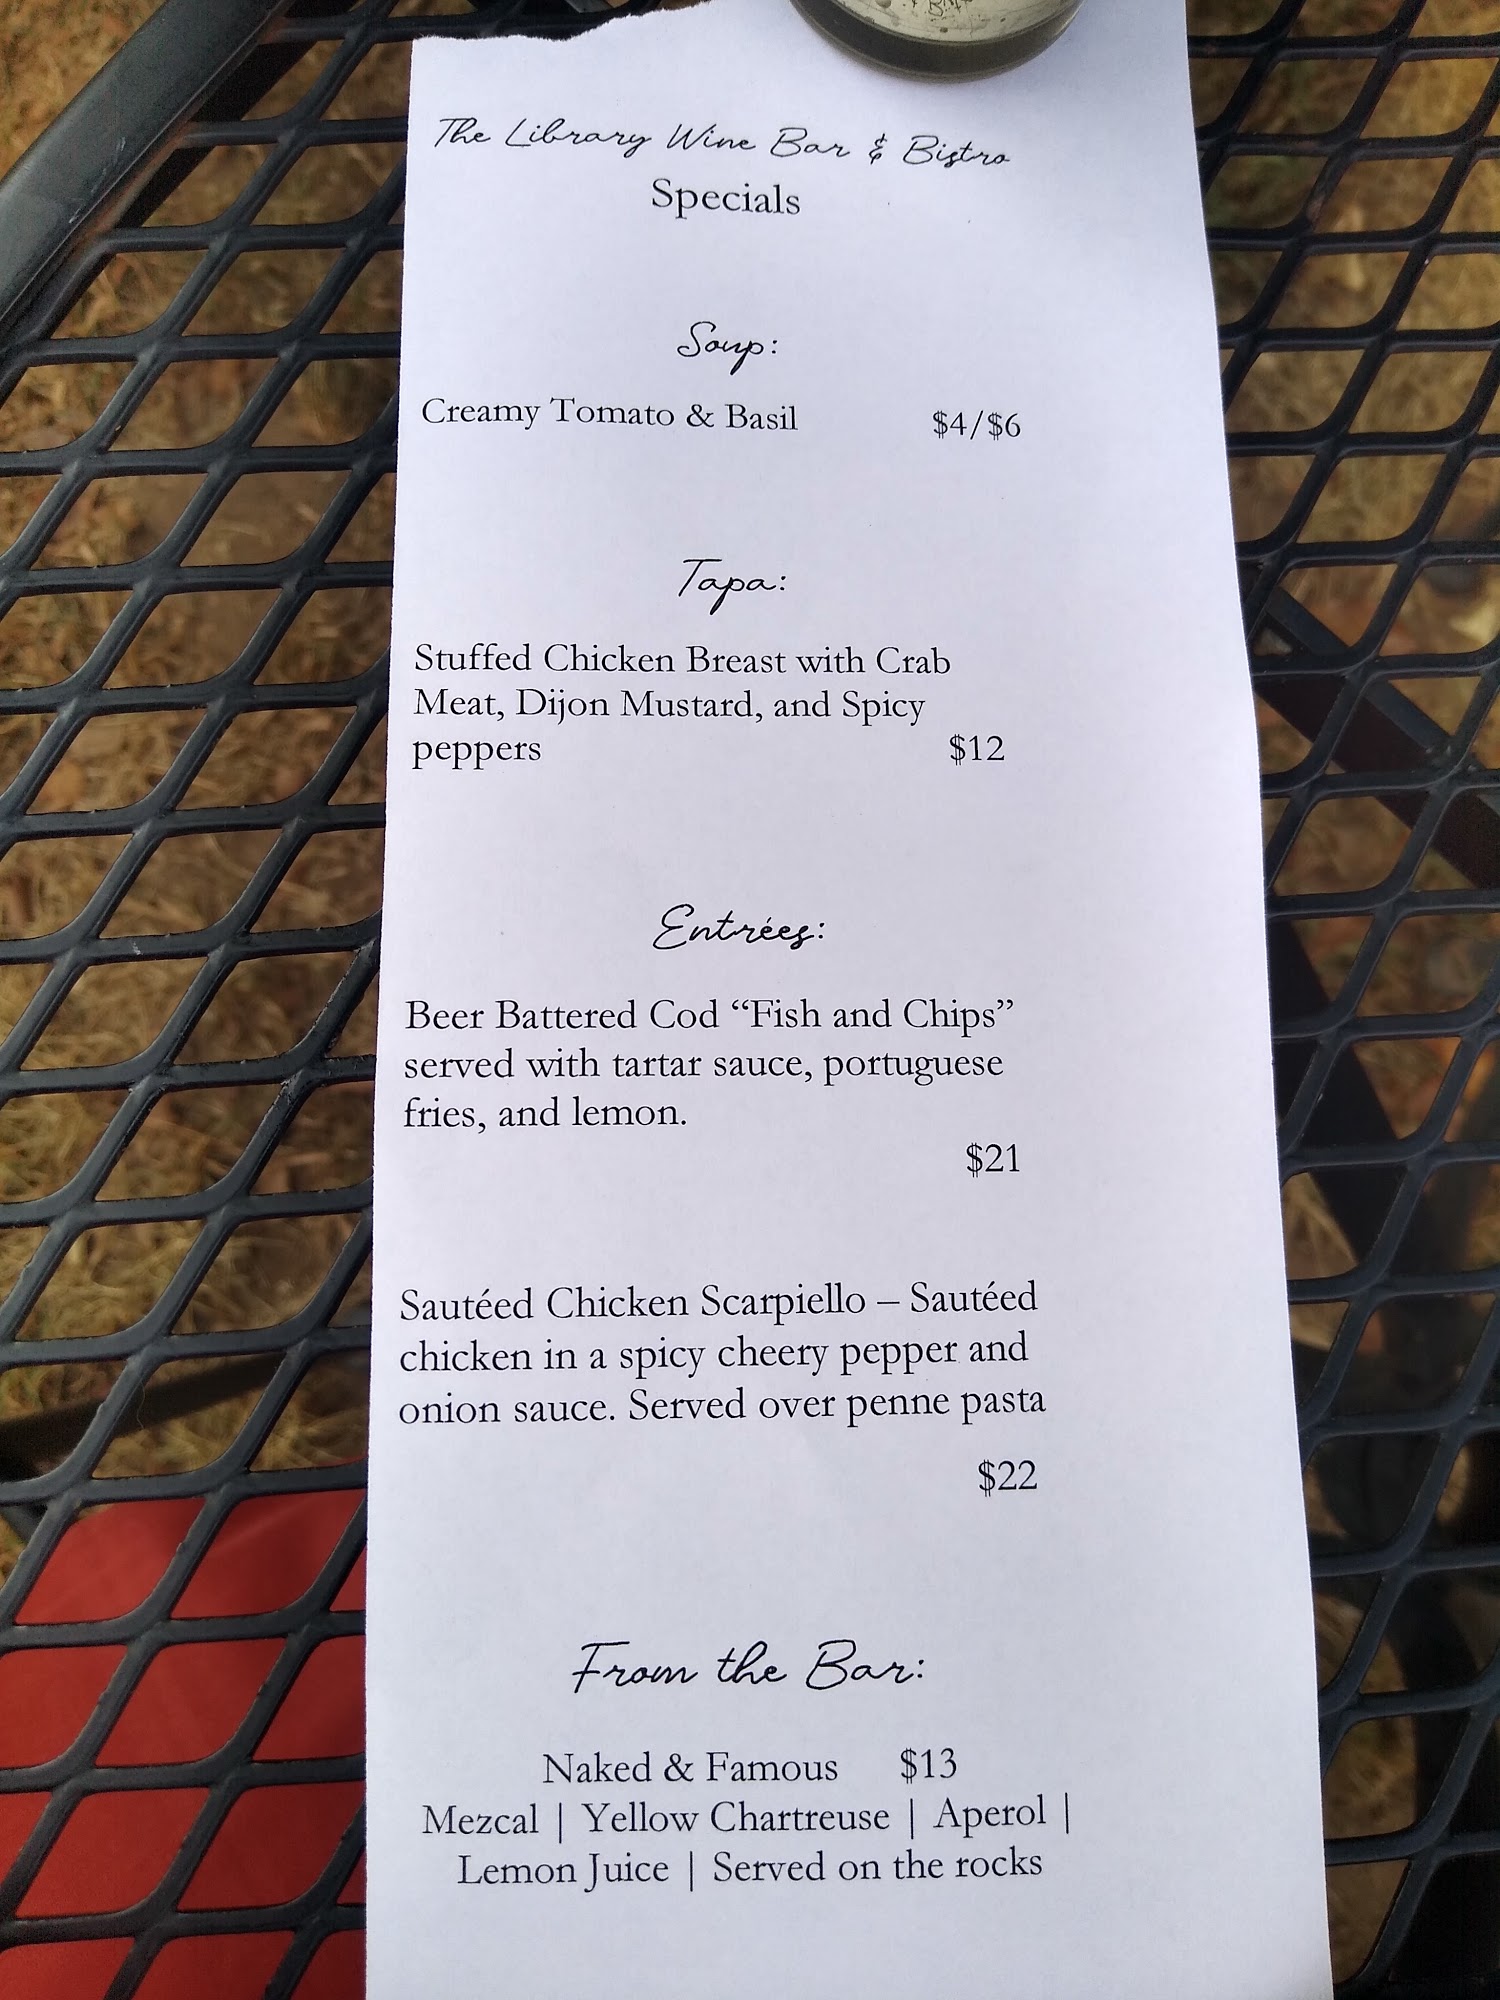 The Library Wine Bar & Bistro
Specials
Soup:
Creamy Tomato & Basil $4/$6
Tapa:
Stuffed Chicken Breast with Crab
Meat, Dijon Mustard, and Spicy
peppers $12
Entrées:
Beer Battered Cod “Fish and Chips”
served with tartar sauce, portuguese
fries, and lemon.
$21
Sautéed Chicken Scarpiello – Sautéed
chicken in a spicy cheery pepper and
onion sauce. Served over penne pasta
$22
From the Bar:
Naked & Famous $13
Mezcal | Yellow Chartreuse | Aperol |
Lemon Juice | Served on the rocks